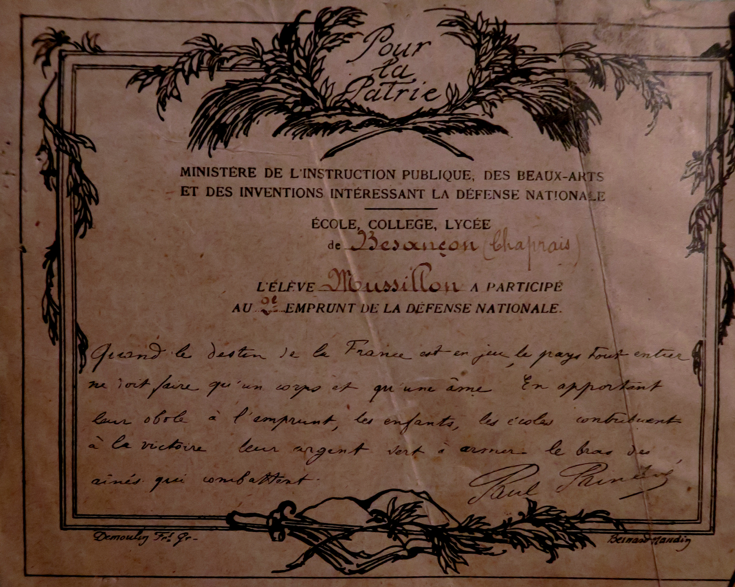 Pour
la
Patrie
MINISTÈRE DE L'INSTRUCTION PUBLIQUE, DES BEAUX-ARTS
ET DES INVENTIONS INTÉRESSANT LA DÉFENSE NATIONALE
ÉCOLE, COLLEGE, LYCÉE
de Besançon (Chaprais)
L'ÉLÈVE Mussillon A PARTICIPÉ
AU 2e EMPRUNT DE LA DÉFENSE NATIONALE.
Quand le destin de la France est en jeu, le pays tout entier
ne doit faire qu'un corps et qu'une âme. En apportant
leur obole à l'emprunt, les enfants, les écoles contribuent
à la victoire leur argent sert à armer le bras des
aînés qui combattent.
Paul Painlevé
Demoulin Frs Gr.
Bernard Naudin